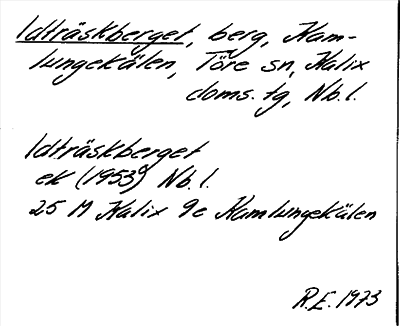 Idträskberget, berg, Kam-
lungekälen, Töre sn, Kalix
doms. tg, Nb. l.
Idträskberget
ek (1953) Nb. l.
25 M Kalix 9e Kamlungekälen
R.E. 1973